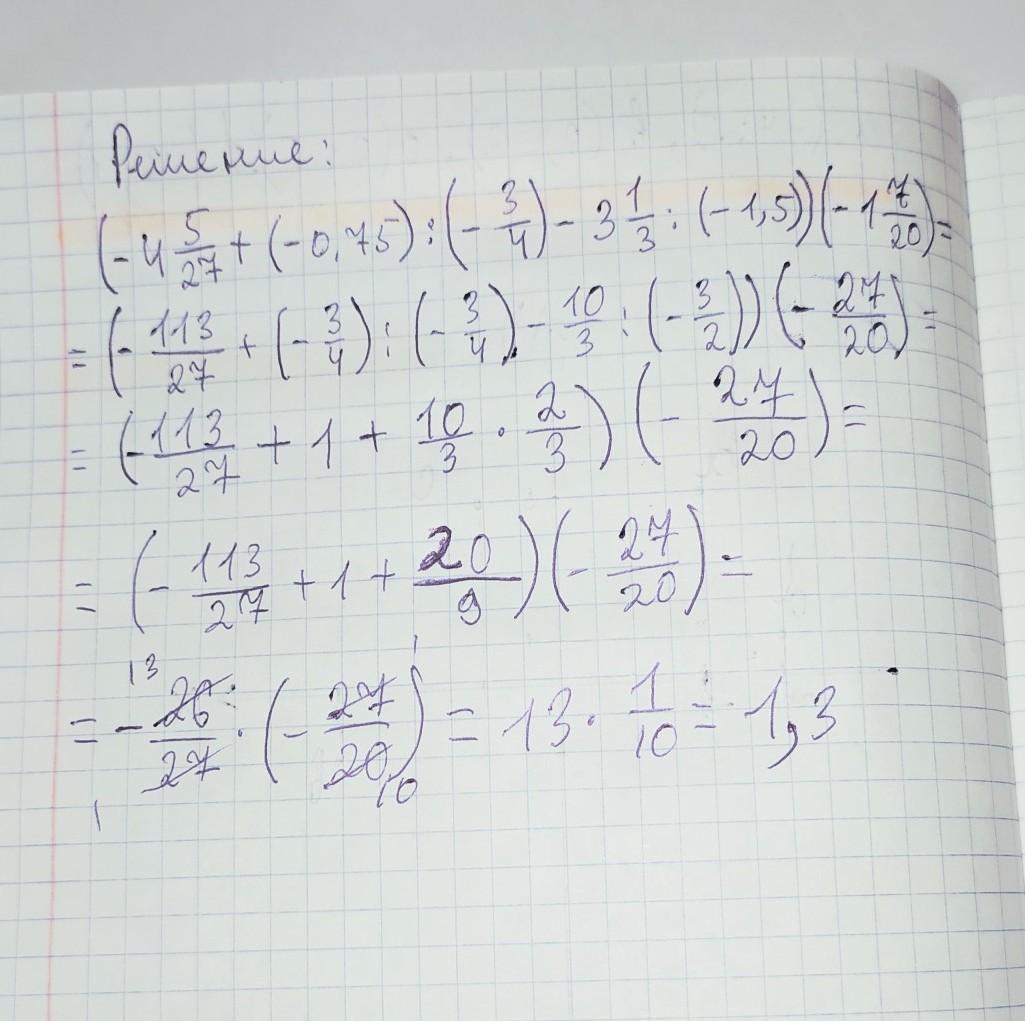 Решение:
(-4 5/27 + (-0,75) : (-3/4) - 3 1/3 : (-1,5)) (-1 7/20) =
= (-113/27 + (-3/4) : (-3/4) - 10/3 : (-3/2)) (-27/20) =
= (-113/27 + 1 + 10/3 · 2/3) (-27/20) =
= (-113/27 + 1 + 20/9) (-27/20) =
13 1
= -26/27 · (-27/20) = 13 · 1/10 = 1,3
1 10